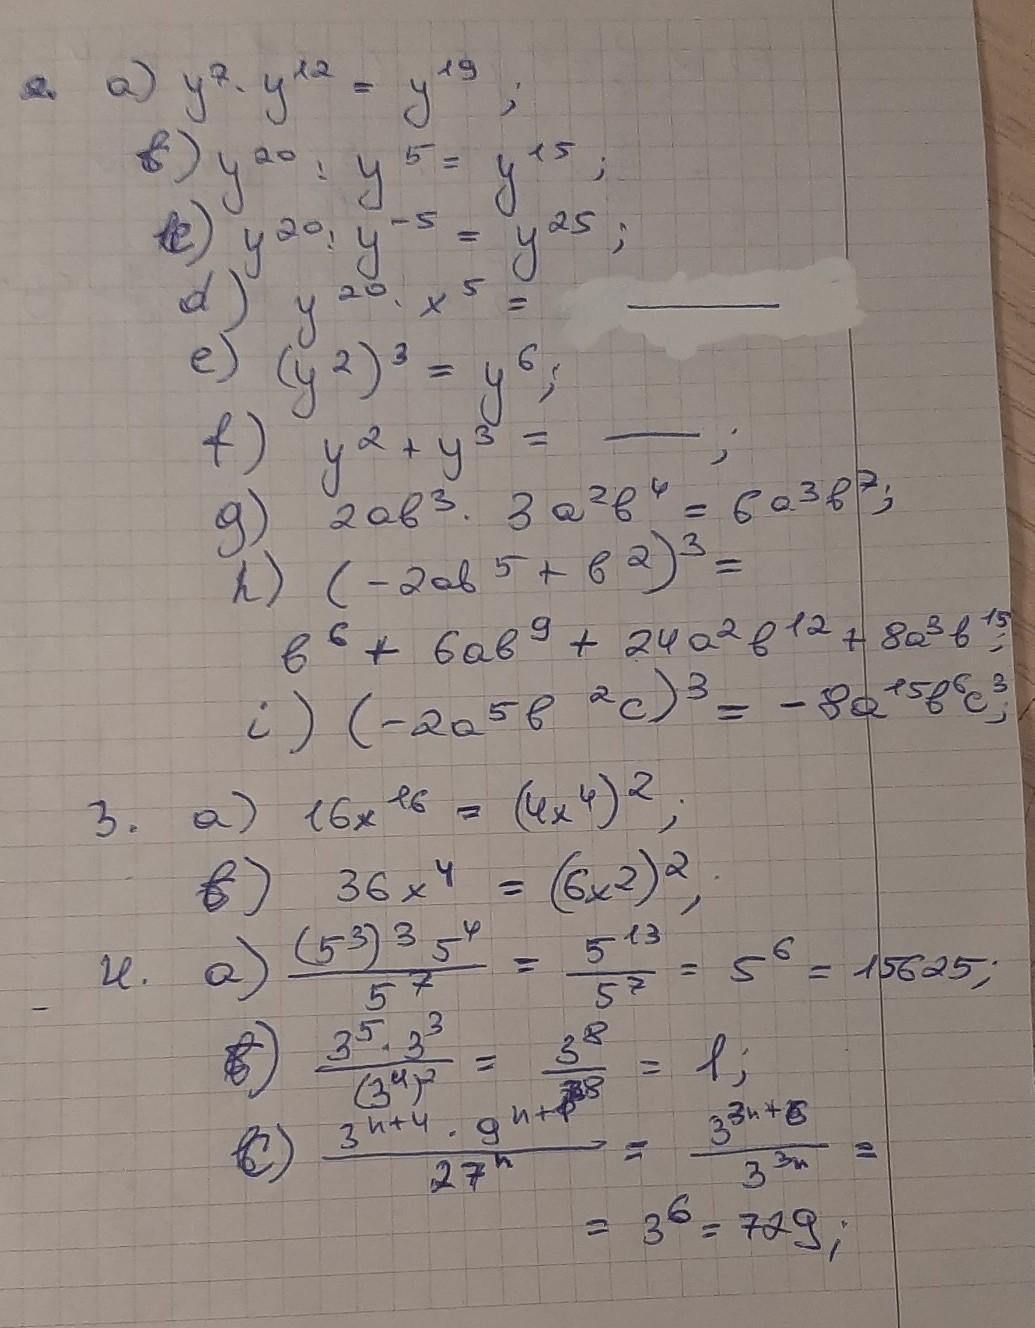 2. a) y⁷ · y¹² = y¹⁹ ;
b) y²⁰ : y⁵ = y¹⁵ ;
c) y²⁰ : y⁻⁵ = y²⁵ ;
d) y²⁰ · x⁵ = —
e) (y²)³ = y⁶;
f) y² + y³ = — ;
g) 2ab³ · 3a²b⁴ = 6a³b⁷;
h) (-2ab⁵ + b²)³ =
b⁶ + 6ab⁹ + 24a²b¹² + 8a³b¹⁵;
i) (-2a⁵b²c)³ = -8a¹⁵b⁶c³;
3. a) 16x¹⁶ = (4x⁴)²;
b) 36x⁴ = (6x2)²;
4. a) (5³)³ 5⁴ / 5⁷ = 5¹³ / 5⁷ = 5⁶ = 15625;
b) 3⁵ · 3³ / (3⁴)² = 3⁸ / 3⁸ = 1;
c) 3ⁿ⁺⁴ · 9ⁿ⁺¹ / 27ⁿ = 3³ⁿ⁺⁶ / 3³ⁿ =
= 3⁶ = 729;